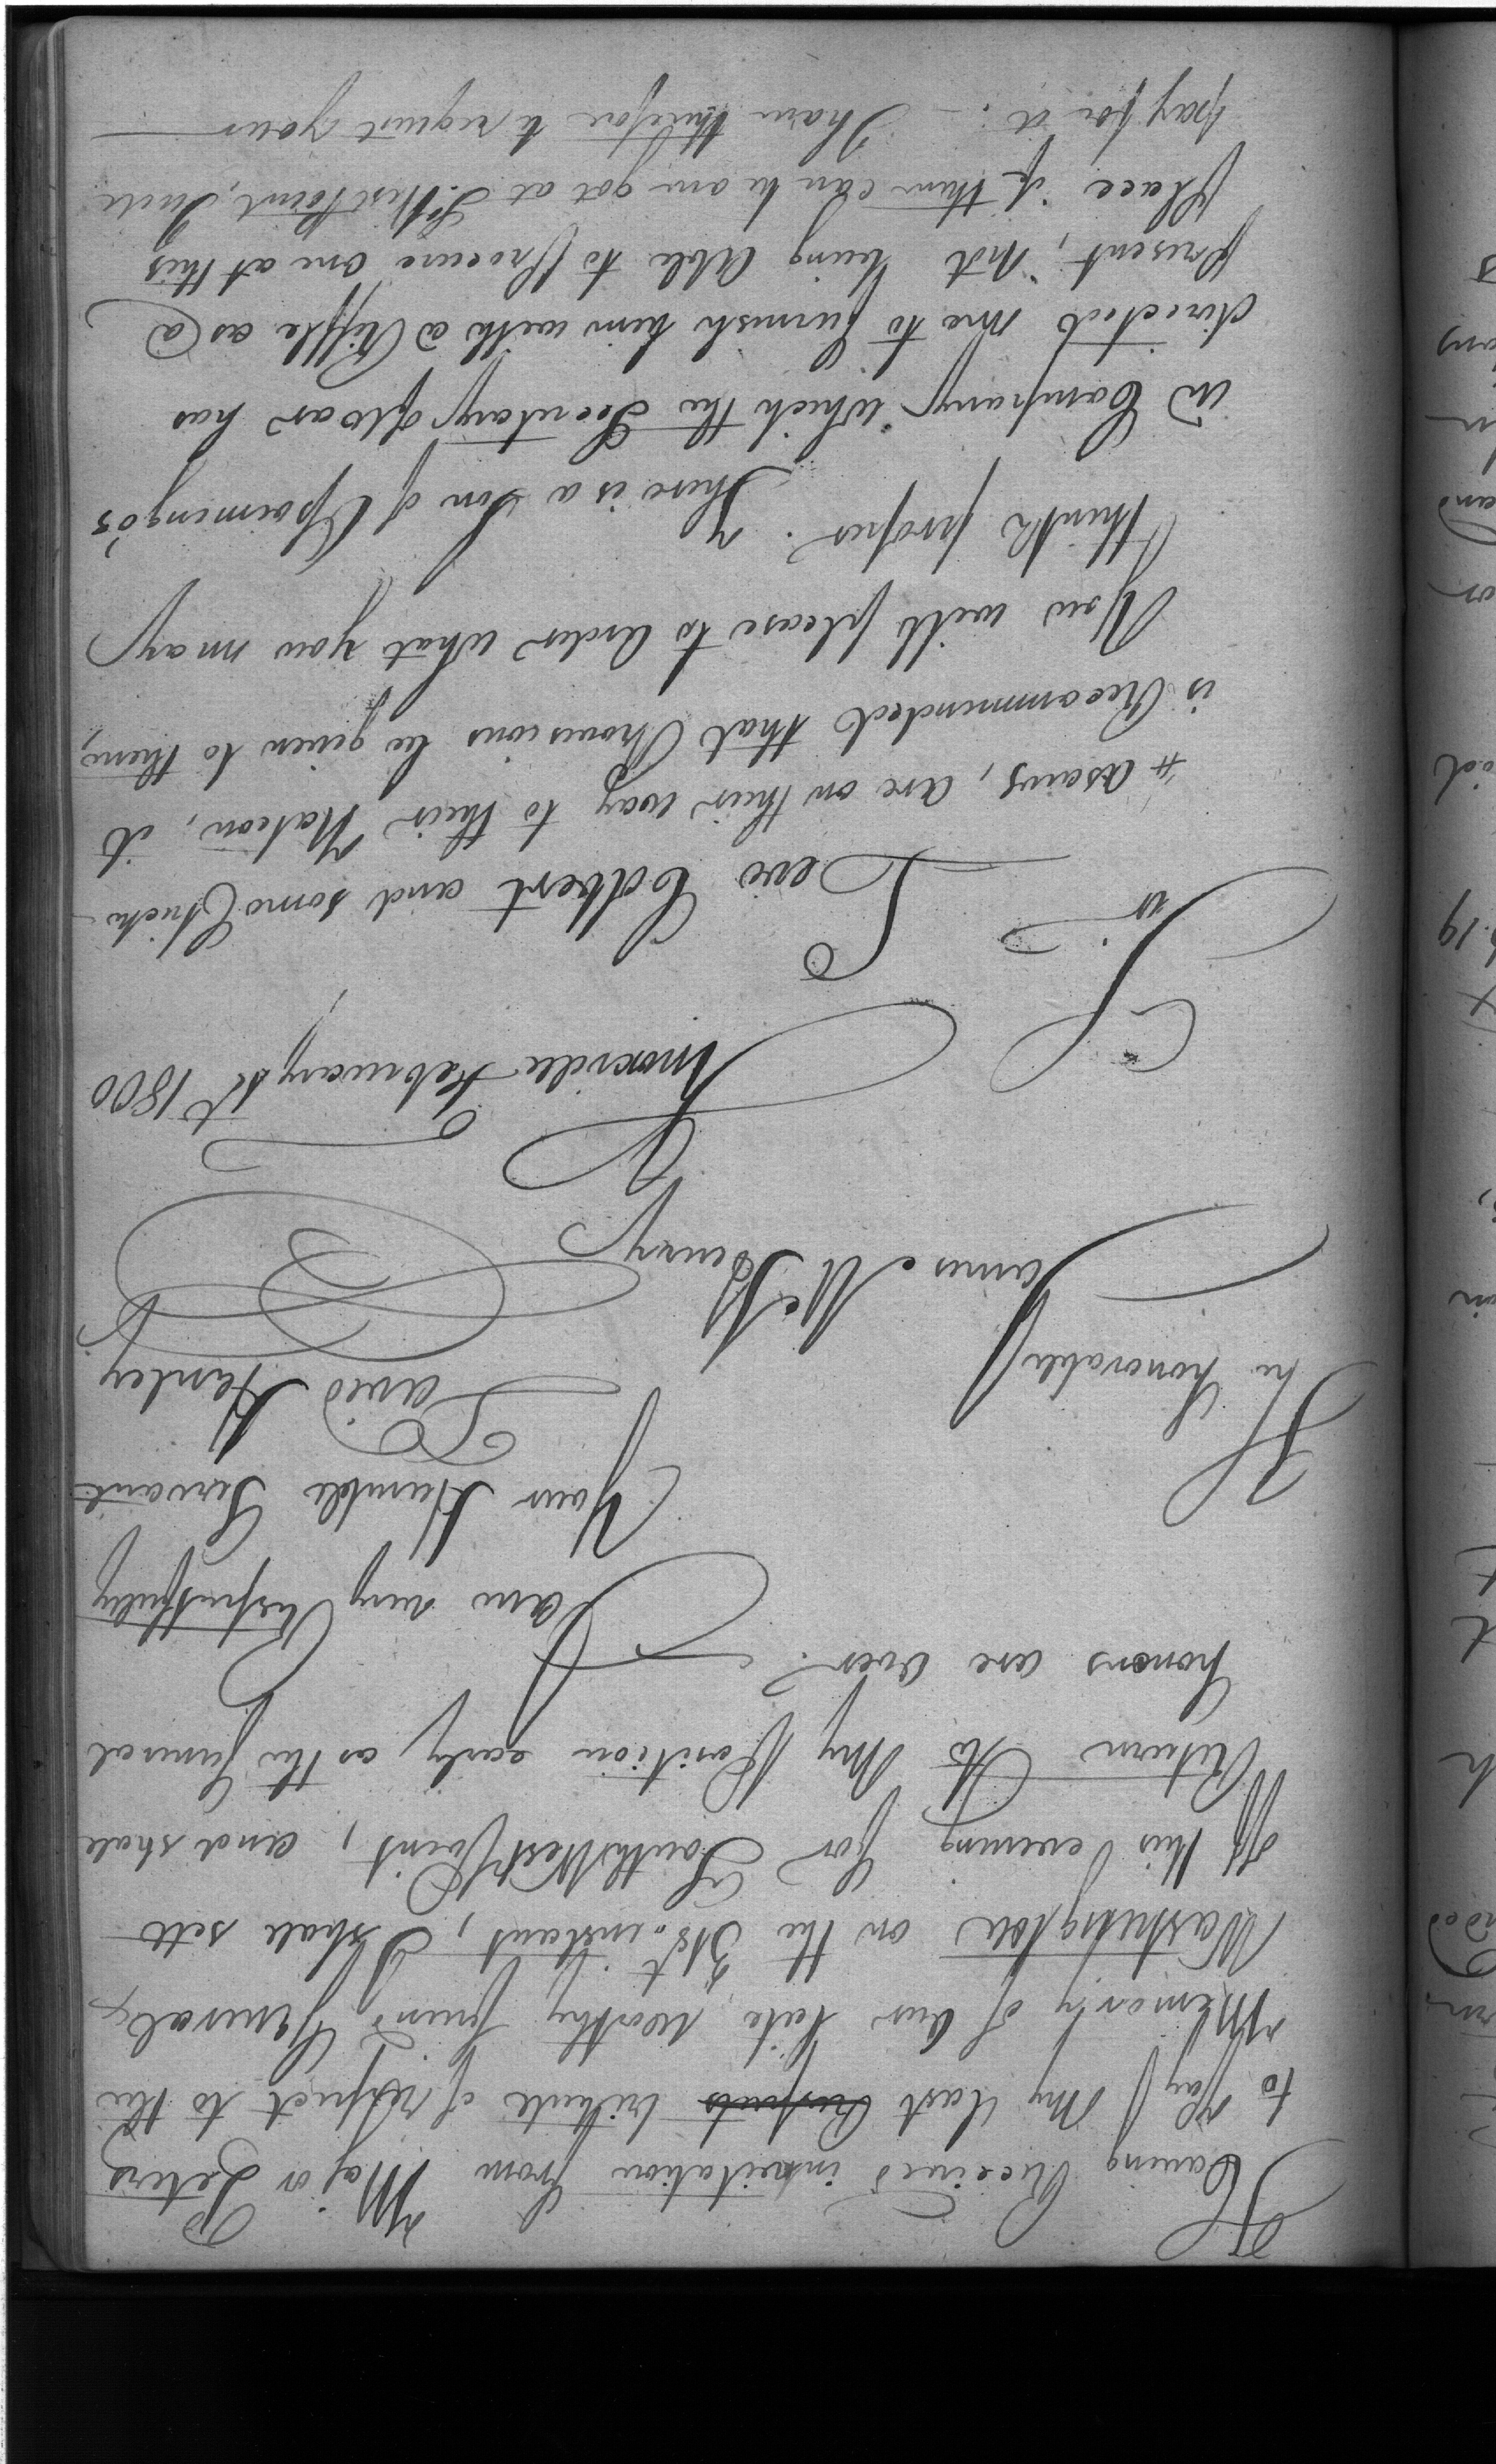 Having Received invitation from Major Peters
to Pay My last Respects tribute of respect to the
Memory of our late, worthy friend, General
Washington on the 31st. instant, I shall sett
off this evening for SouthWest Point, and shall
Return to My Position early as the funeral
honors are over.
I am very Respectfully
Your Humble Servant
David Henley
The honorable
James McHenry
Knoxville February 1st 1800
Sir
Levi Colbert and some Chick-
asaws, are on their way to their Nation, it
is Recommended that Provisions be given to them,
You will please to order what you may
think proper. There is a Son of Opoimingo's
in Company which the Secretary of War has
directed me to furnish him with a Riffle as a
present, not being Able to Procure one at this
place if there can be one got at S. West Point, I will
pay for it. I have therefore to request your